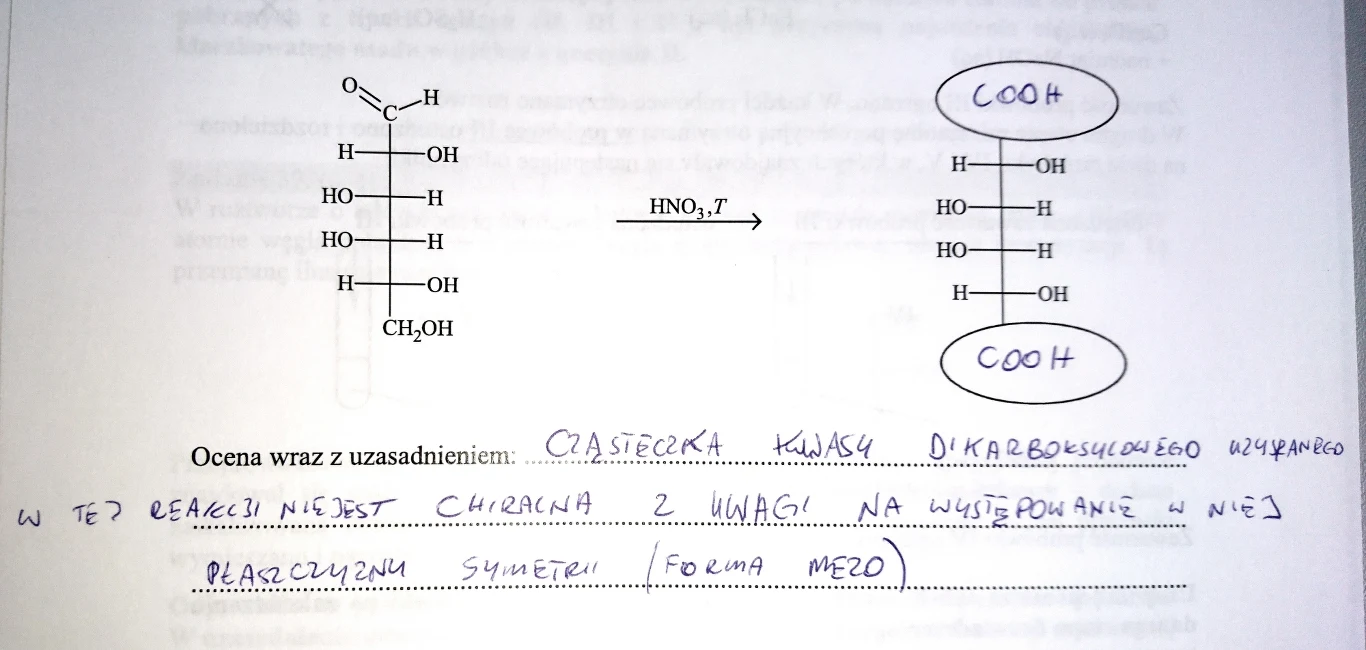 O
C
H
H
OH
HO
H
HO
H
H
OH
CH₂OH
HNO₃,T
COOH
H
OH
HO
H
HO
H
H
OH
COOH
Ocena wraz z uzasadnieniem: CZĄSTECZKA KWASU DIKARBOKSYLOWEGO UZYSKANEGO
W TEJ REAKCJI NIE JEST CHIRALNA Z UWAGI NA WYSTĘPOWANIE W NIEJ
PŁASZCZYZNY SYMETRII (FORMA MEZO)